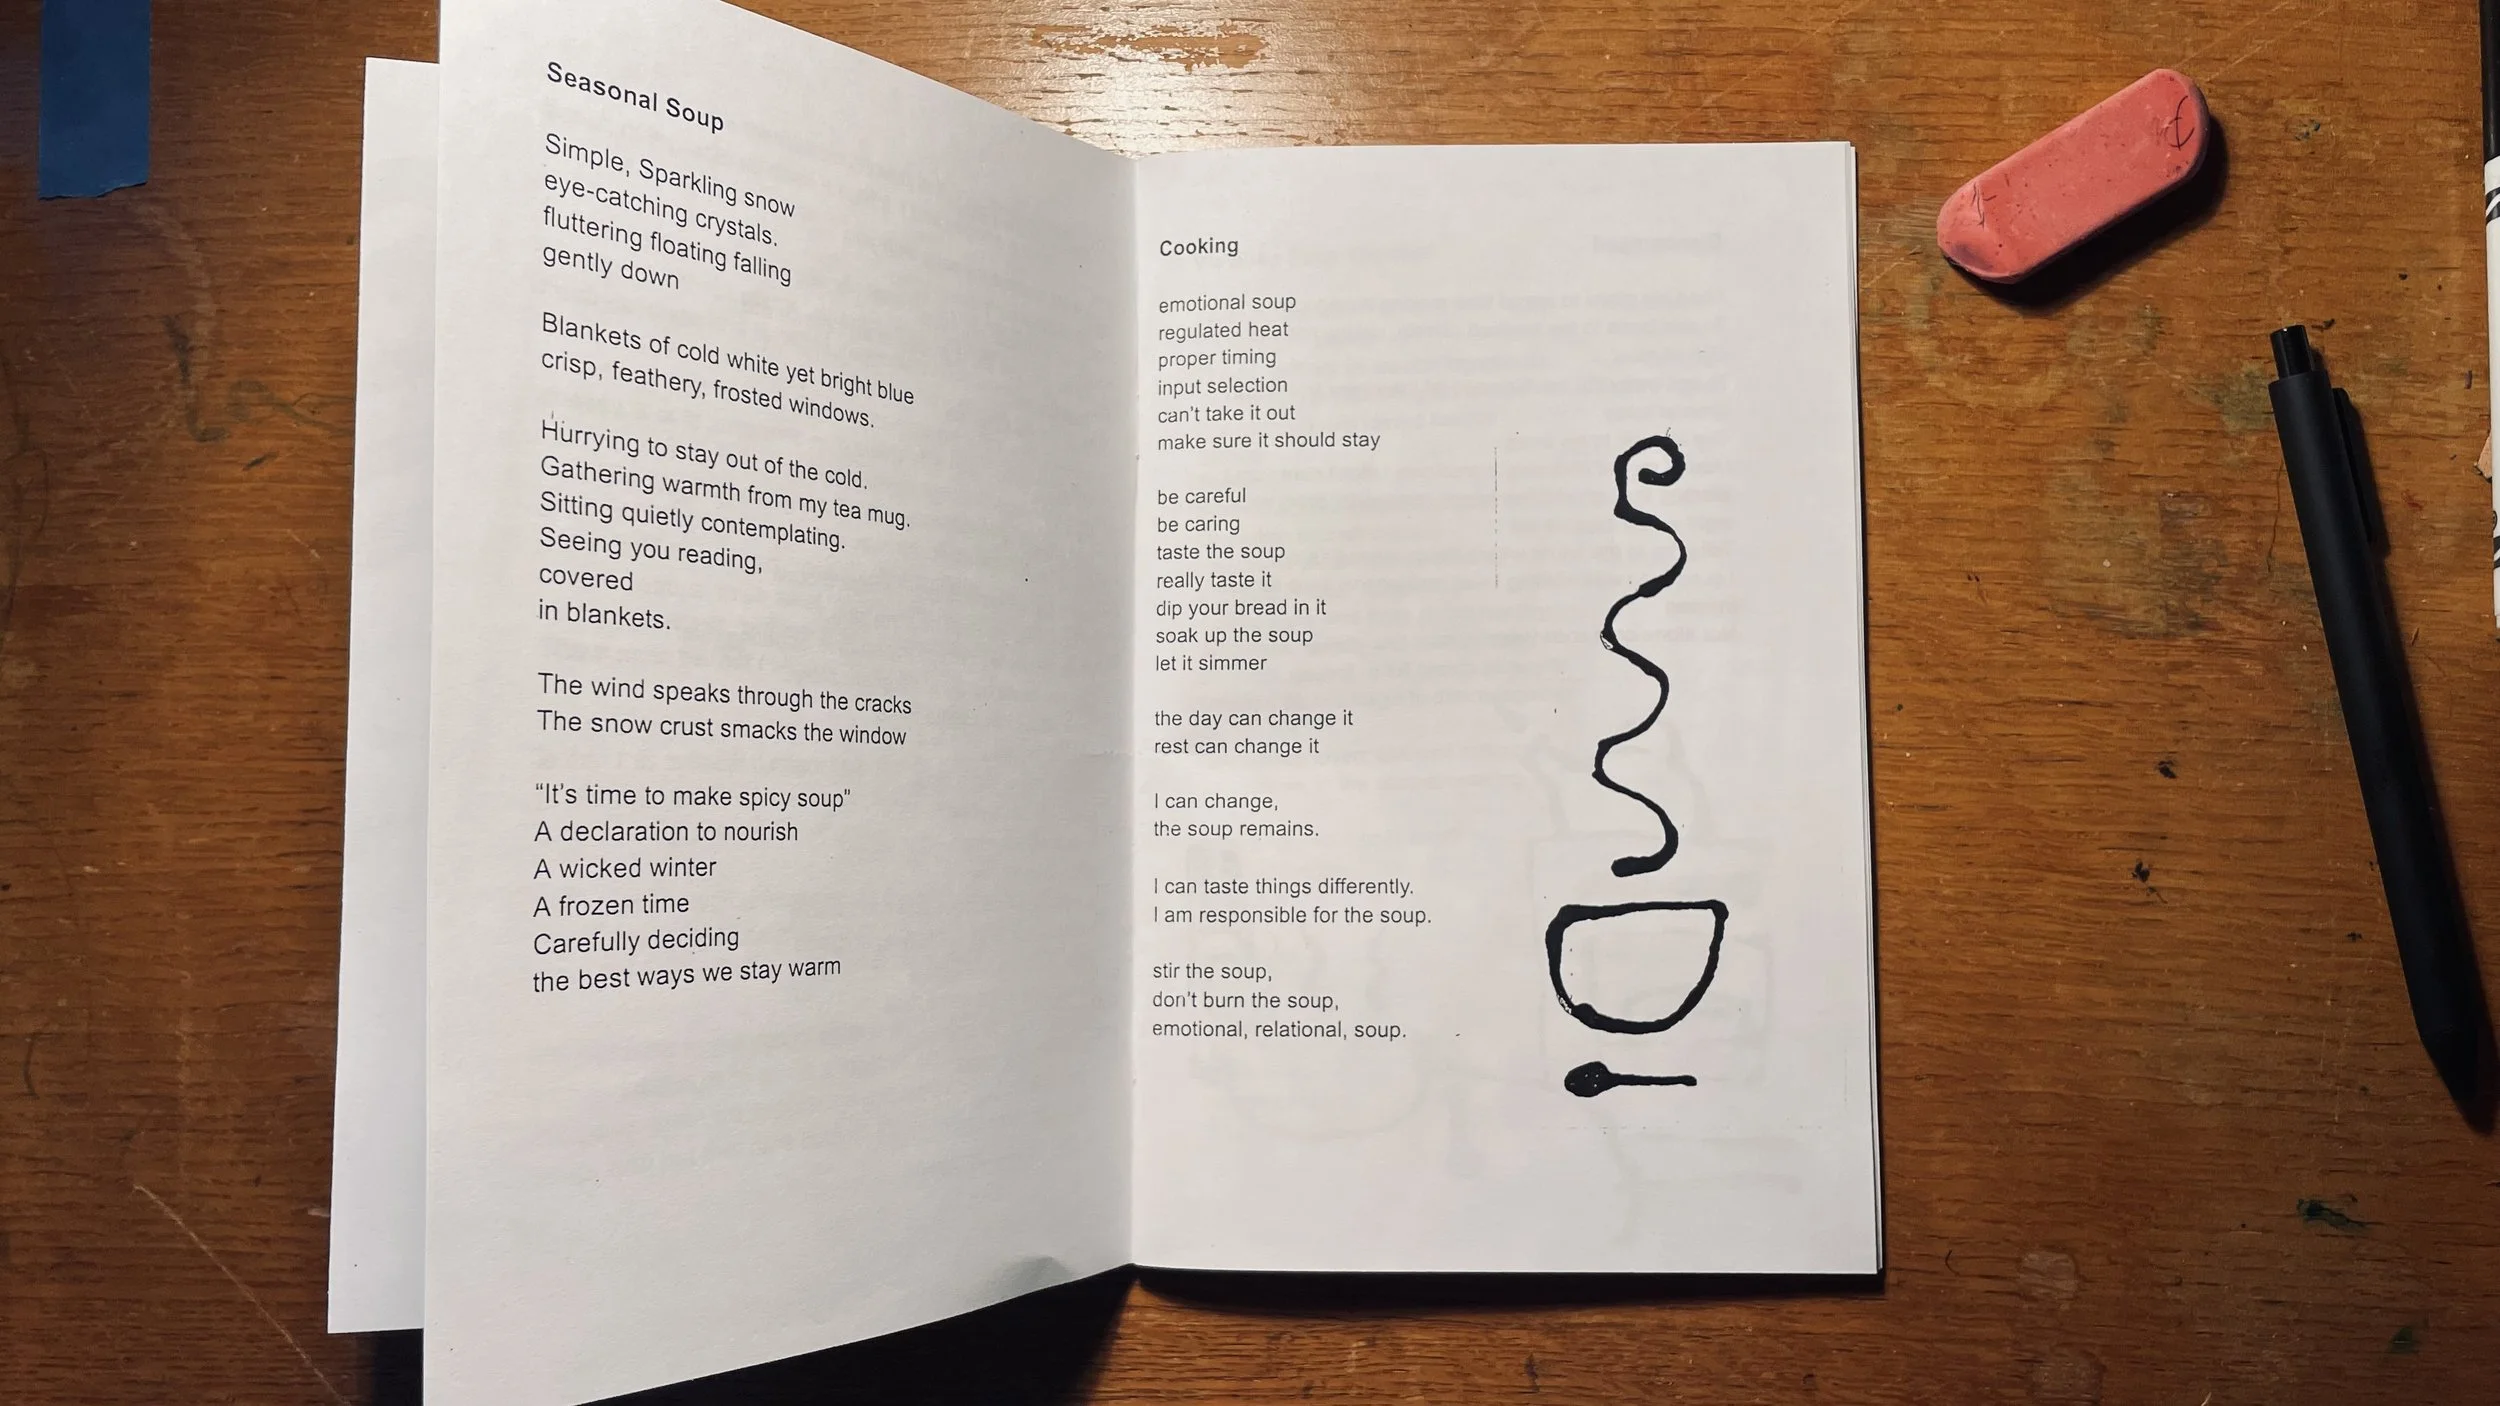 Seasonal Soup
Simple, Sparkling snow
eye-catching crystals.
fluttering floating falling
gently down
Blankets of cold white yet bright blue
crisp, feathery, frosted windows.
Hurrying to stay out of the cold.
Gathering warmth from my tea mug.
Sitting quietly contemplating.
Seeing you reading,
covered
in blankets.
The wind speaks through the cracks
The snow crust smacks the window
“It’s time to make spicy soup"
A declaration to nourish
A wicked winter
A frozen time
Carefully deciding
the best ways we stay warm
Cooking
emotional soup
regulated heat
proper timing
input selection
can't take it out
make sure it should stay
be careful
be caring
taste the soup
really taste it
dip your bread in it
soak up the soup
let it simmer
the day can change it
rest can change it
I can change,
the soup remains.
I can taste things differently.
I am responsible for the soup.
stir the soup,
don't burn the soup,
emotional, relational, soup.